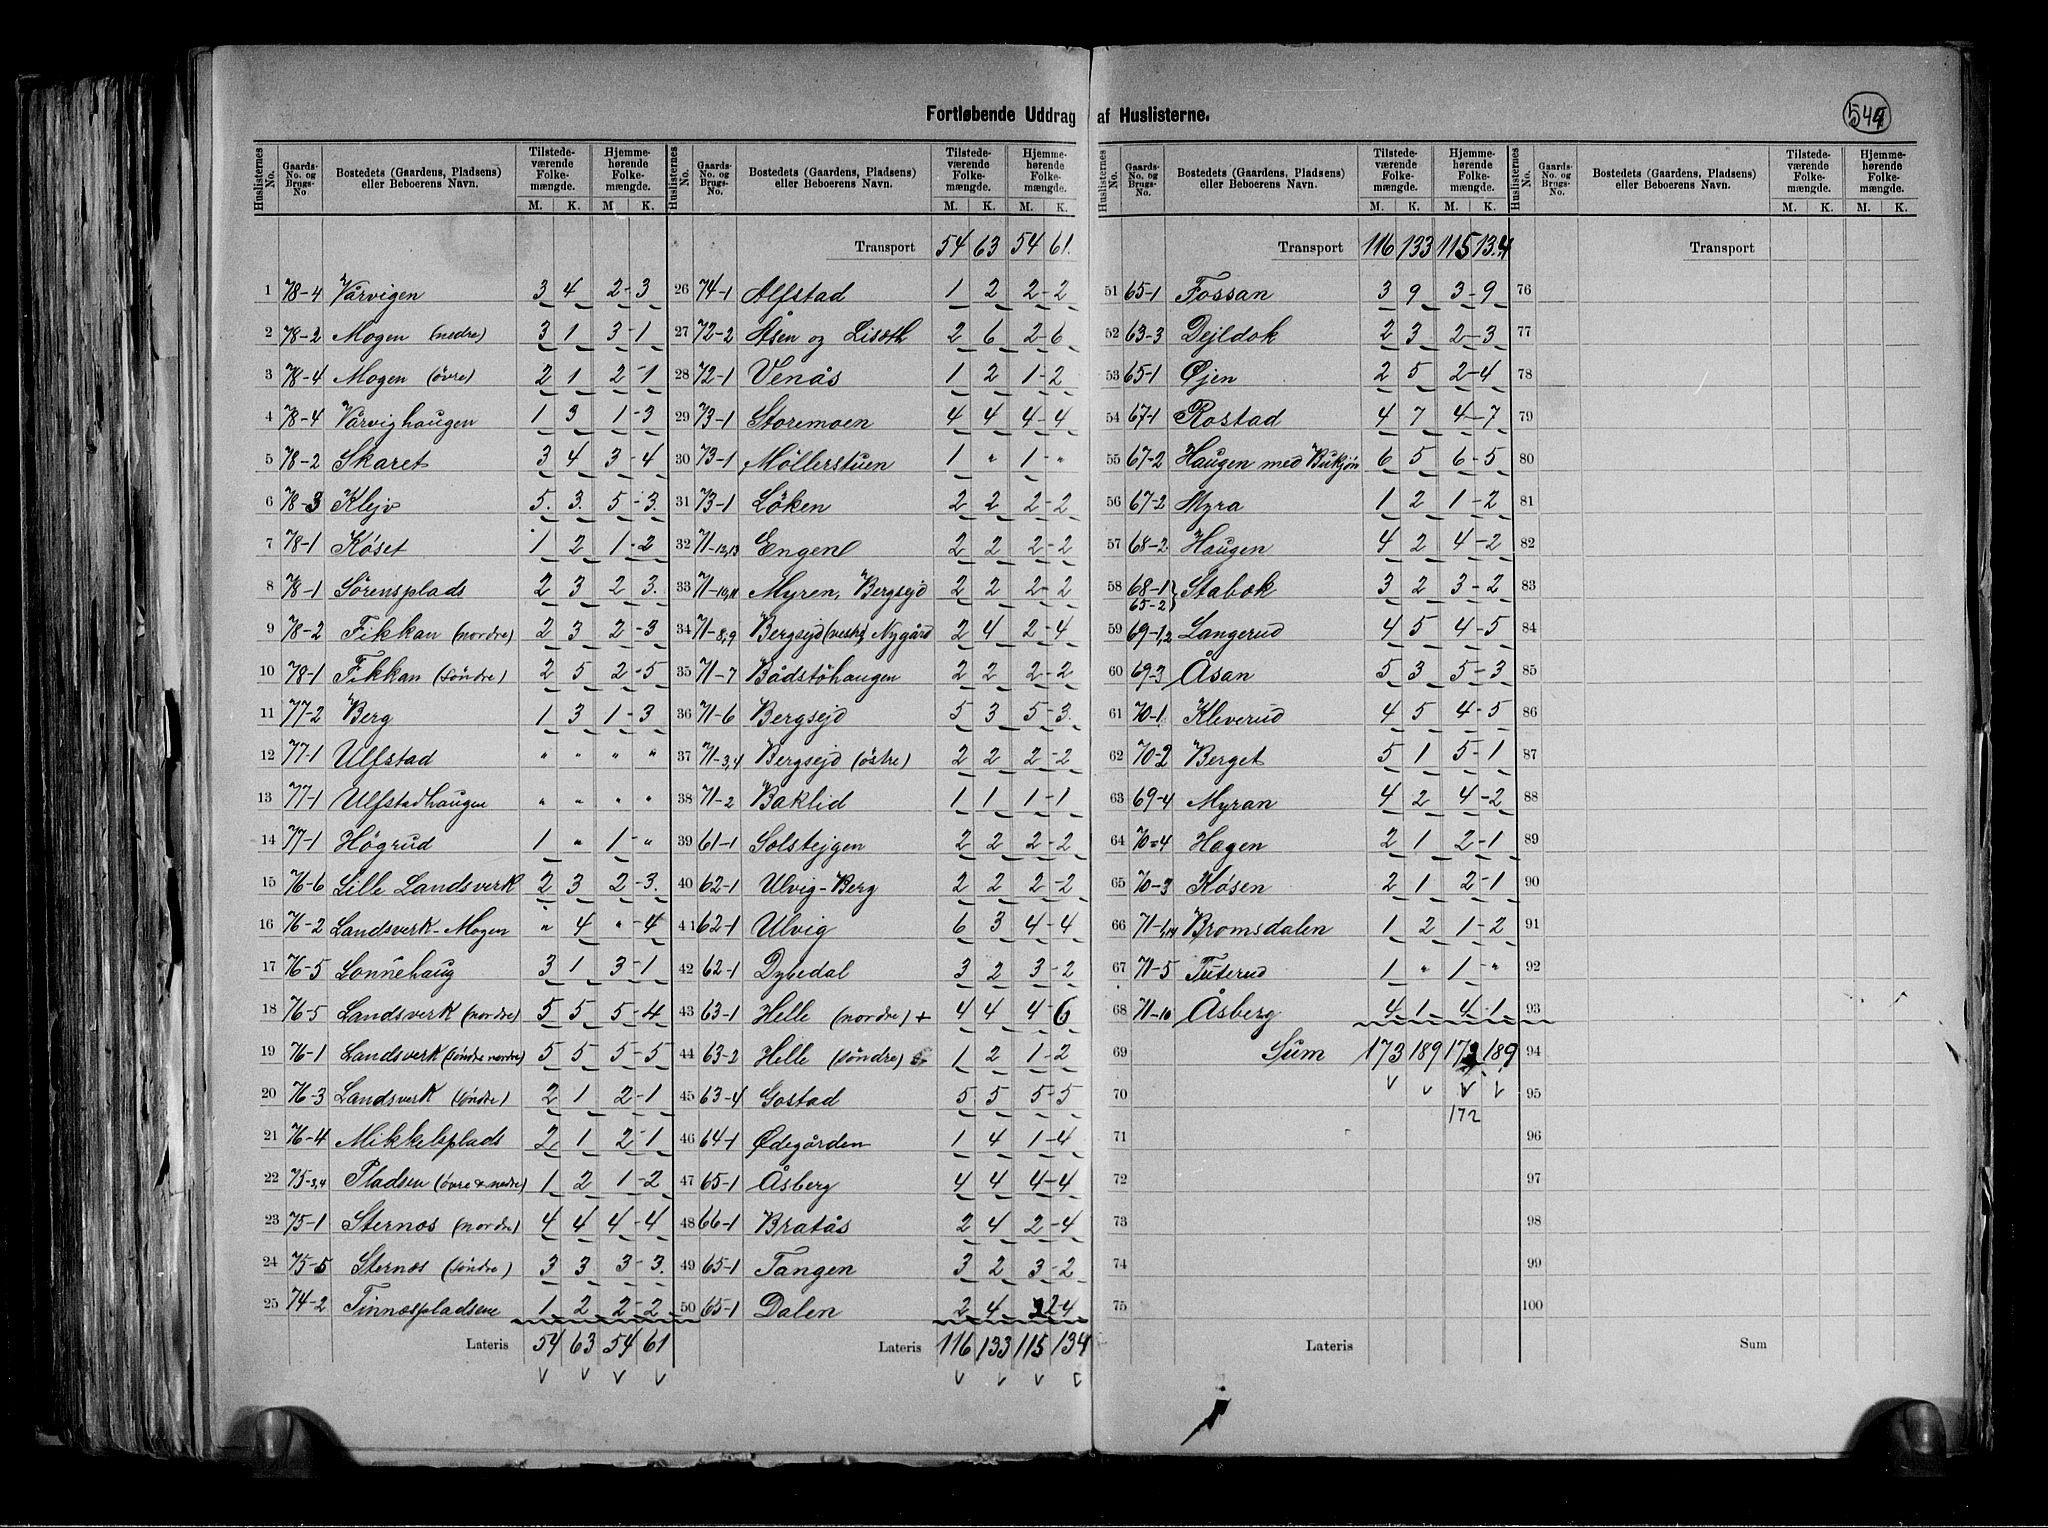 Fortløbende Uddrag af Huslisterne.
544
Huslisternes No. Gaards-No. og Brugs-No. Bostedets (Gaardens, Pladsens) eller Beboerens Navn. Tilstedeværende Folkemængde. M. K. Hjemmehørende Folkemængde. M K.
1 78-4 Vårvigen 3 4 2-3
2 78-2 Mogen (nedre) 3 1 3-1
3 78-4 Mogen (övre) 2 1 2-1
4 78-4 Vårvighaugen 1 3 1-3
5 78-2 Skaret 3 4 3-4
6 78-3 Klejv 5. 3. 5-3.
7 78-1 Köset 1 2 1-2
8 78-1 Sörensplads 2 3 2 3.
9 78-2 Fikkan (nordre) 2 3 2-3
10 78-1 Fikkan (söndre) 2 5 2-5
11 77-2 Berg 1 3 1-3
12 77-1 Ulfstad " " " "
13 77-1 Ulfstadhaugen " " " "
14 77-1 Högrud 1 " 1-"
15 76-6 Lille Landsverk 2 3 2-3.
16 76-2 Landsverk-Mogen " 4 "-4
17 76-5 Lonnehaug 3 1 3-1
18 76-5 Landsverk (nordre) 5 5 5-4
19 76-1 Landsverk (söndre nordre) 5 5 5-5
20 76-3 Landsverk (söndre) 2 1 2-1
21 76-4 Mikkelsplads 2 1 2-1
22 75-3,4 Pladsen (övre & nedre) 1 2 1-2
23 75-1 Sternæs (nordre) 4 4 4-4
24 75-5 Sternæs (söndre) 3 3 3-3.
25 74-2 Tinnæspladsene 1 2 2-2
Lateris 54 63 54 61
Huslisternes No. Gaards-No. og Brugs-No. Bostedets (Gaardens, Pladsens) eller Beboerens Navn. Tilstedeværende Folkemængde. M. K. Hjemmehørende Folkemængde. M. K.
Transport 54 63 54 61.
26 74-1 Alfstad 1 2 2-2
27 72-2 Åsen og Lisæth 2 6 2-6
28 72-1 Venås 1 2 1-2
29 73-1 Storemoen 4 4 4-4
30 73-1 Möllerstuen 1 " 1-"
31 73-1 Löken 2 2 2-2
32 71-12,13 Engene 2 2 2-2
33 71-10,11 Myren, Bergsejd 2 2 2-2
34 71-8,9 Bergsejd (vestre) Nygård 2 4 2-4
35 71-7 Bådstöhaugen 2 2 2-2
36 71-6 Bergsejd 5 3 5-3.
37 71-3,4 Bergsejd (östre) 2 2 2-2
38 71-2 Baklid 1 1 1-1
39 61-1 Solstejgen 2 2 2-2
40 62-1 Ulvig-Berg 2 2 2-2
41 62-1 Ulvig 6 3 4-4
42 62-1 Dybedal 3 2 3-2
43 63-1 Helle (nordre) + 4 4 4-6
44 63-2 Helle (söndre) 1 2 1-2
45 63-4 Gostad 5 5 5-5
46 64-1 Ødegården 1 4 1-4
47 65-1 Åsberg 4 4 4-4
48 66-1 Bratås 2 4 2-4
49 65-1 Tangen 3 2 3-2
50 65-1 Dalen 2 4 2-4
Lateris 116 133 115 134
Huslisternes No. Gaards-No. og Brugs-No. Bostedets (Gaardens, Pladsens) eller Beboerens Navn. Tilstedeværende Folkemængde. M. K. Hjemmehørende Folkemængde. M. K.
Transport 116 133 115 134
51 65-1 Fossan 3 9 3-9
52 63-3 Dejldok 2 3 2-3
53 65-1 Øjen 2 5 2-4
54 67-1 Rostad 4 7 4-7
55 67-2 Haugen med Bukjön 6 5 6-5
56 67-2 Myra 1 2 1-2
57 68-2 Haugen 4 2 4-2
58 68-1 65-2 } Stabæk 3 2 3-2
59 69-1,2 Langerud 4 5 4-5
60 69-3 Åsan 5 3 5-3
61 70-1 Kleverud 4 5 4-5
62 70-2 Berget 5 1 5-1
63 69-4 Myran 4 2 4-2
64 70-4 Hagen 2 1 2-1
65 70-3 Kösen 2 1 2-1
66 71-1,14 Bromsdalen 1 2 1-2
67 71-5 Tuterud 1 " 1-"
68 71-10 Åsberg 4 1 4-1
69 Sum 173 189 172 189
70
172
71
72
73
74
75
Lateris
Huslisternes No. Gaards-No. og Brugs-No. Bostedets (Gaardens, Pladsens) eller Beboerens Navn. Tilstedeværende Folkemængde. M. K. Hjemmehørende Folkemængde. M. K.
Transport
76
77
78
79
80
81
82
83
84
85
86
87
88
89
90
91
92
93
94
95
96
97
98
99
100
Sum